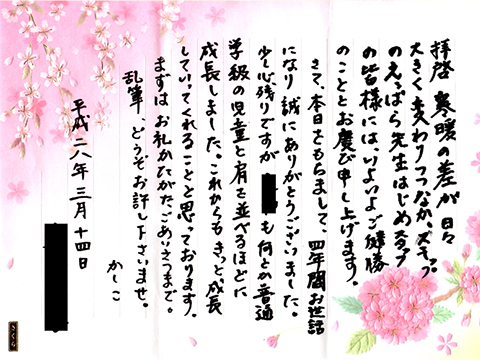 拝啓 寒暖の差が日々
大きく変わりつつなか、スキップ
のえっぱら先生はじめスタッフ
の皆様には、いよいよご健勝
のこととお慶び申し上げます。
さて、本日をもちまして、四年間お世話
になり誠にありがとうございました。
少し心残りですが も何とか普通
学級の児童と肩を並べるほどに
成長しました。これからもきっと成長
していってくれることと思っております。
まずはお礼かたがたごあいさつまで。
乱筆、どうぞお許し下さいませ。
かしこ
平成二八年三月十四日
さくら